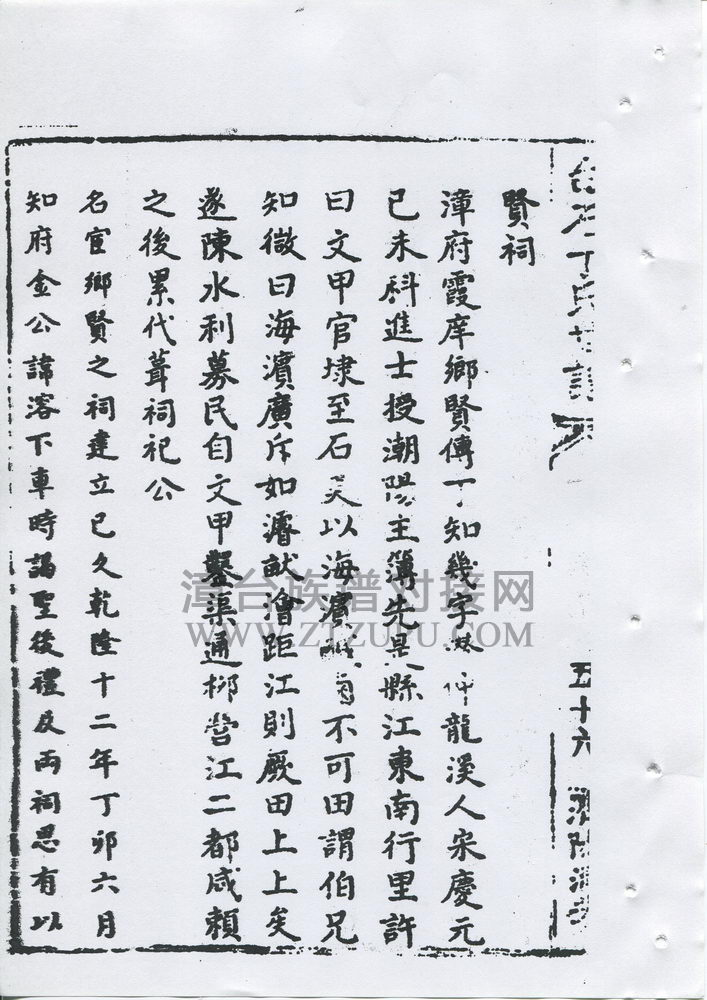 丁氏
五十六
賢祠
漳府霞庠鄉賢傳丁知幾字 仲龍溪人宋慶元
己未科進士授潮陽主簿先是縣江東南行里許
曰文甲官埭至石 以海濱 不可田謂伯兄
知微曰海濱廣斥如濬畎澮距江則厥田上上矣
遂陳水利募民自文甲鑿渠通柳營江二都咸賴
之後累代葺祠祀公
名宦鄉賢之祠建立已久乾隆十二年丁卯六月
知府金公諱溶下車時謁聖後禮及兩祠思有以
漳台族谱对接网
WWW.ZTZUPU.COM